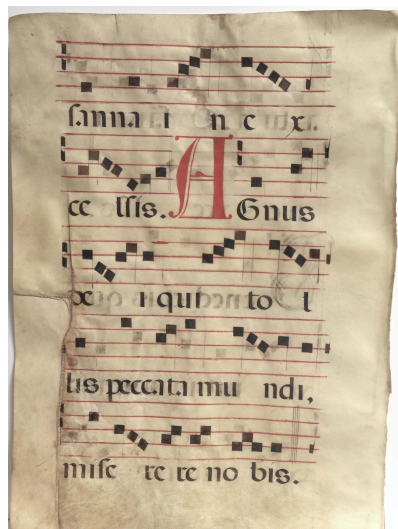 sanna i n e x.
ce llis. AGnus
i qui to l
lis peccata mu ndi,
mise re re no bis.